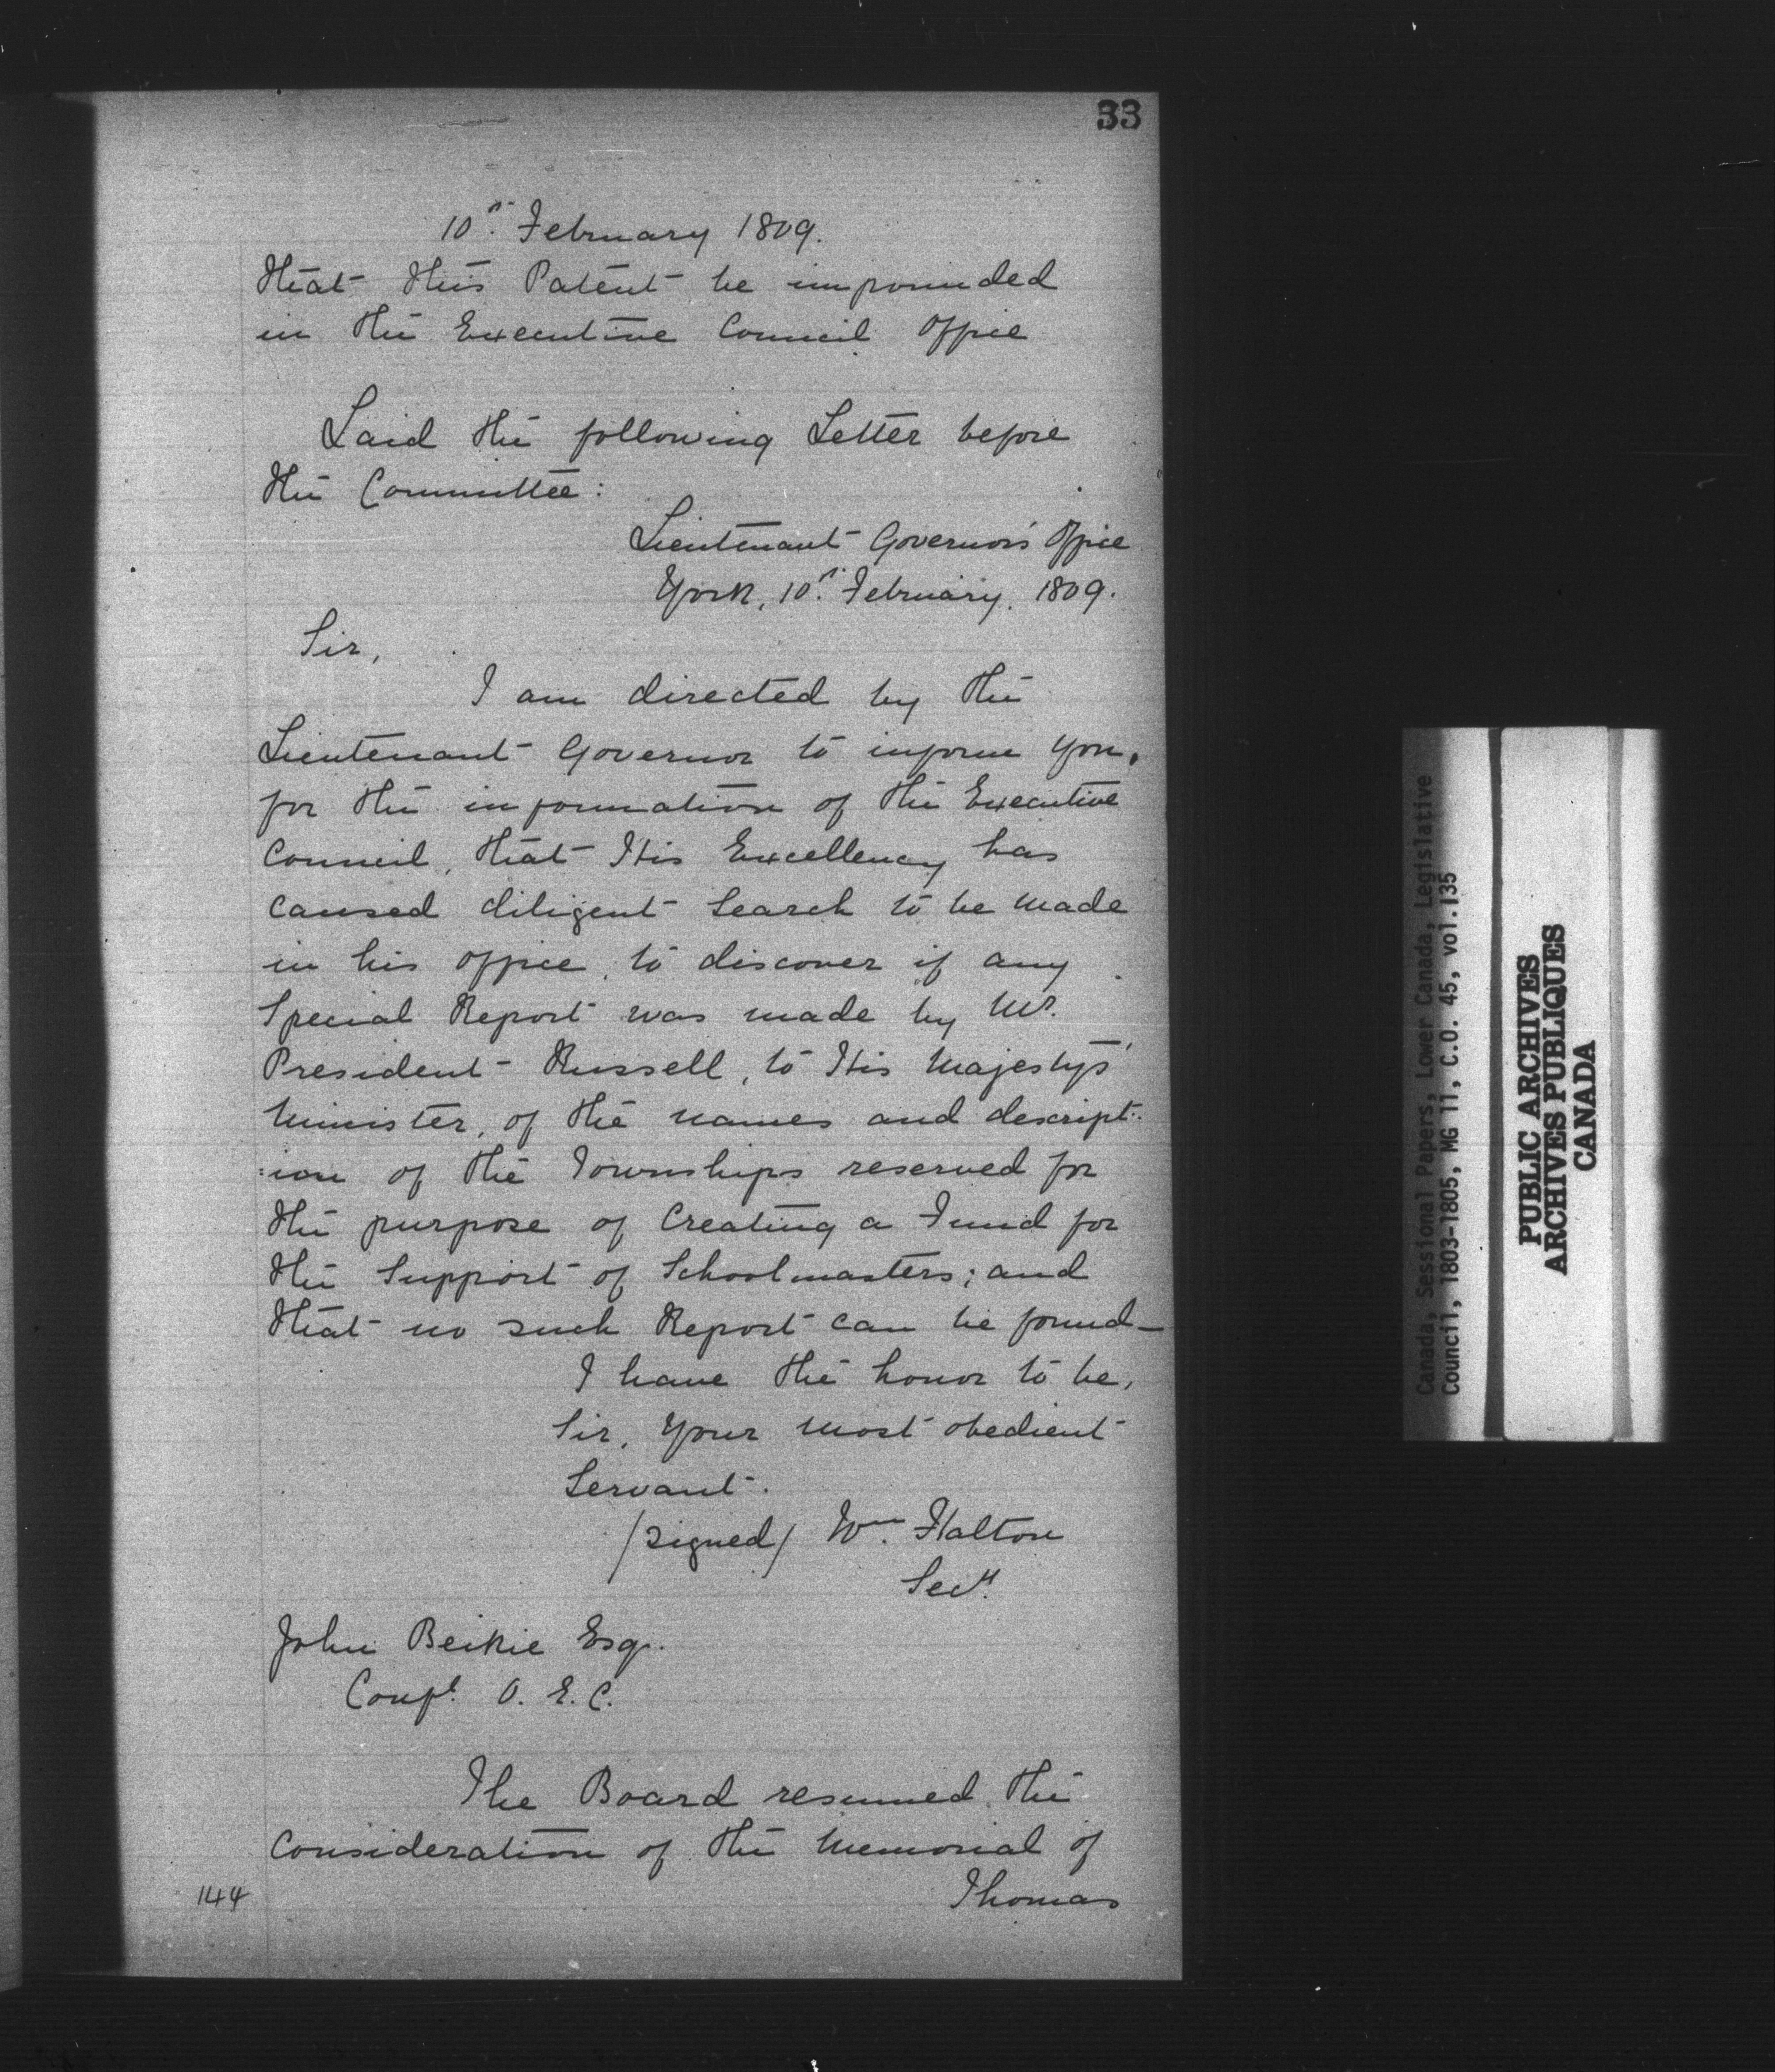 33
10th. February 1809.
that this Patent be impounded
in the Executive Council Office
Laid the following Letter before
the Committee:
Lieutenant Governor's Office
York, 10th. February, 1809.
Sir,
I am directed by the
Lieutenant Governor to inform you,
for the information of the Executive
Council, that His Excellency has
caused diligent Search to be made
in his office, to discover if any
Special Report was made by Mr.
President Russell, to His Majesty's
Minister, of the names and descript:
:ion of the Townships reserved for
the purpose of Creating a Fund for
the Support of Schoolmasters; and
that no such Report can be found—
I have the honor to be,
Sir, Your most obedient
Servant.
/signed/ Wm. Halton
Secy.
John Beikie Esqr.
Conf. O. E. C.
The Board resumed the
Consideration of the Memorial of
144
Thomas
Canada, Sessional Papers, Lower Canada, Legislative
Council, 1803-1805, MG 11, C.O. 45, vol.135
PUBLIC ARCHIVES
ARCHIVES PUBLIQUES
CANADA